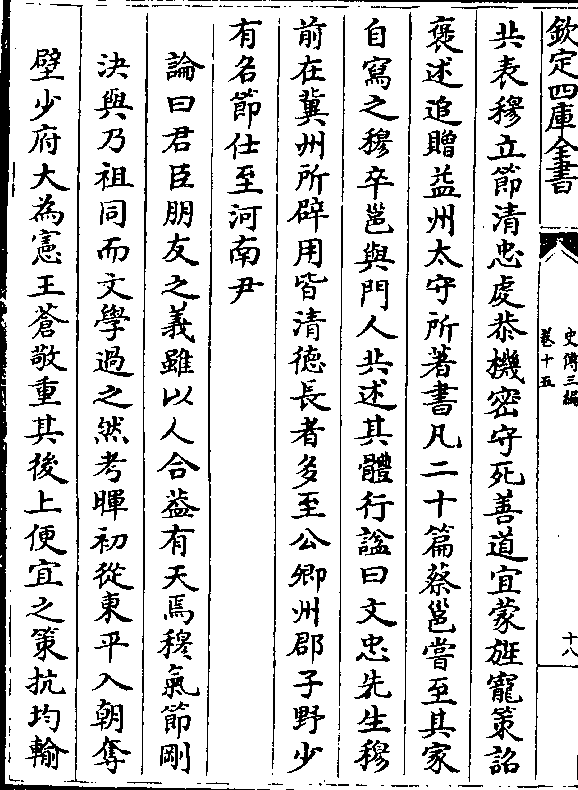 欽定四庫全書
史傳三編
卷十五
十八
共表穆立節清忠處恭機密守死善道宜蒙旌寵策詔
褒述追贈益州太守所著書凡二十篇蔡邕嘗至其家
自寫之穆卒邕與門人共述其體行諡曰文忠先生穆
前在冀州所辟用皆清德長者多至公卿州郡子野少
有名節仕至河南尹
論曰君臣朋友之義雖以人合葢有天焉穆氣節剛
決與乃祖同而文學過之然考暉初從東平入朝奪
壁少府大為憲王蒼敬重其後上便宜之策抗均輸